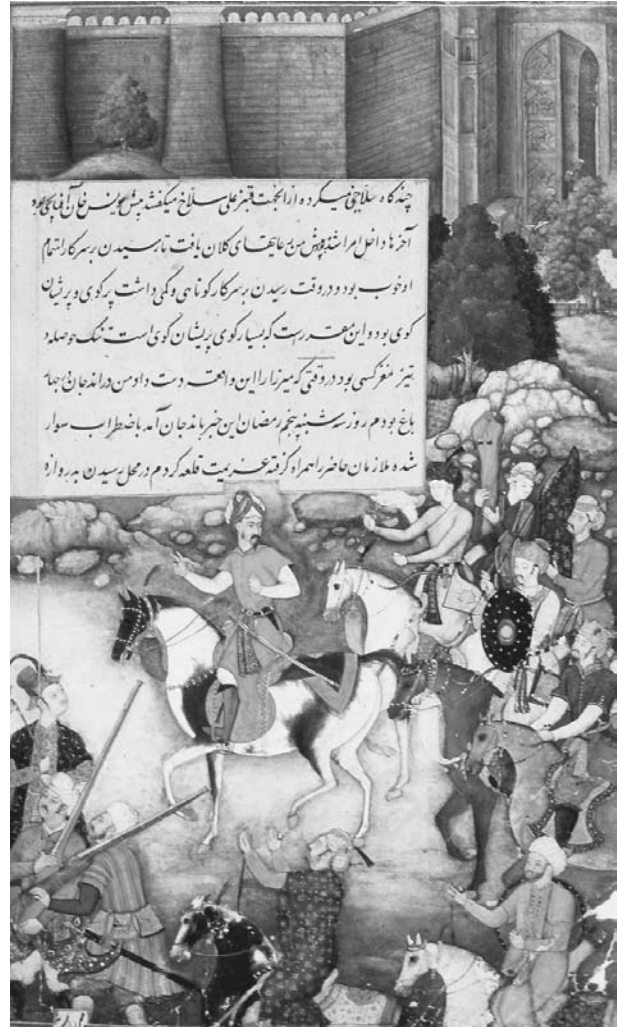 چند کاه سلاخی میکرده از انجهت قنبر علی سلاخ میکفتند پیش یونس خان آفتابچی بود
آخرها داخل امرا شد پیش من رعایتهای کلان یافت تا رسیدن بر سر کار اهتمام
او خوب بود و در وقت رسیدن بر سر کار کوتاهی و کمی داشت پر کوی و پریشان
کوی بود و این مقدرست که بسیار کوی پریشان کوی است تنک حوصله و
تیز مغز کسی بود در وقتی که میرزا را این واقعه دست داد من در اندجان چهار
باغ بودم روز سه شنبه پنجم رمضان این خبر باندجان آمد باضطراب سوار
شده ملازمان حاضر را همراه کرفته عزیمت قلعه کردم در محل رسیدن به دروازه